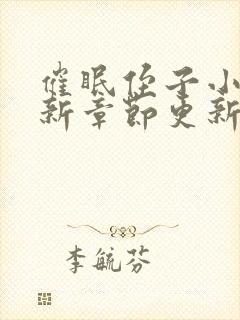 催眠侄子小
新章节更新
李毓芬